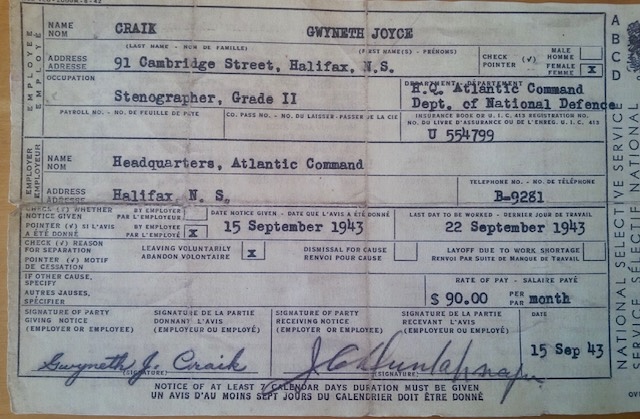 NAME
NOM
CRAIK GWYNETH JOYCE
(LAST NAME - NOM DE FAMILLE) (FIRST NAME(S) - PRÉNOMS)
ADDRESS
ADRESSE
91 Cambridge Street, Halifax, N.S.
CHECK
POINTER (√)
MALE
HOMME
FEMALE
FEMME X
EMPLOYEE
EMPLOYÉ
OCCUPATION
Stenographer, Grade II
DEPARTMENT - DÉPARTEMENT
H.Q. Atlantic Command
Dept. of National Defence
PAYROLL NO. - NO. DE FEUILLE DE PAYE
CO. PASS NO. - NO. DU LAISSER-PASSER DE LA CIE
INSURANCE BOOK OR U. I. C. 413 REGISTRATION NO.
NO. DU LIVRE D'ASSURANCE OU DE L'ENREG. U. I. C. 413
U 554799
EMPLOYER
EMPLOYEUR
NAME
NOM
Headquarters, Atlantic Command
ADDRESS
ADRESSE
Halifax, N. S.
TELEPHONE NO. - NO. DE TÉLÉPHONE
B-9281
CHECK (√) WHETHER
NOTICE GIVEN
POINTER (√) SI L'AVIS
A ÉTÉ DONNÉ
BY EMPLOYER
PAR L'EMPLOYEUR
BY EMPLOYEE
PAR L'EMPLOYÉ X
DATE NOTICE GIVEN - DATE QUE L'AVIS A ÉTÉ DONNÉ
15 September 1943
LAST DAY TO BE WORKED - DERNIER JOUR DE TRAVAIL
22 September 1943
CHECK (√) REASON
FOR SEPARATION
POINTER (√) MOTIF
DE CESSATION
LEAVING VOLUNTARILY
ABANDON VOLONTAIRE X
DISMISSAL FOR CAUSE
RENVOI POUR CAUSE
LAYOFF DUE TO WORK SHORTAGE
RENVOI PAR SUITE DE MANQUE DE TRAVAIL
IF OTHER CAUSE,
SPECIFY
AUTRES CAUSES,
SPÉCIFIER
RATE OF PAY - SALAIRE PAYÉ
$ 90.00 PER
PAR month
SIGNATURE OF PARTY
GIVING NOTICE
(EMPLOYER OR EMPLOYEE)
SIGNATURE DE LA PARTIE
DONNANT L'AVIS
(EMPLOYEUR OU EMPLOYÉ)
Gwyneth J. Craik
(SIGNATURE)
SIGNATURE OF PARTY
RECEIVING NOTICE
(EMPLOYER OR EMPLOYEE)
SIGNATURE DE LA PARTIE
RECEVANT L'AVIS
(EMPLOYEUR OU EMPLOYÉ)
(SIGNATURE)
DATE
15 Sep 43
NOTICE OF AT LEAST 7 CALENDAR DAYS DURATION MUST BE GIVEN
UN AVIS D'AU MOINS SEPT JOURS DU CALENDRIER DOIT ÊTRE DONNÉ
A
B
C
D
NATIONAL SELECTIVE SERVICE